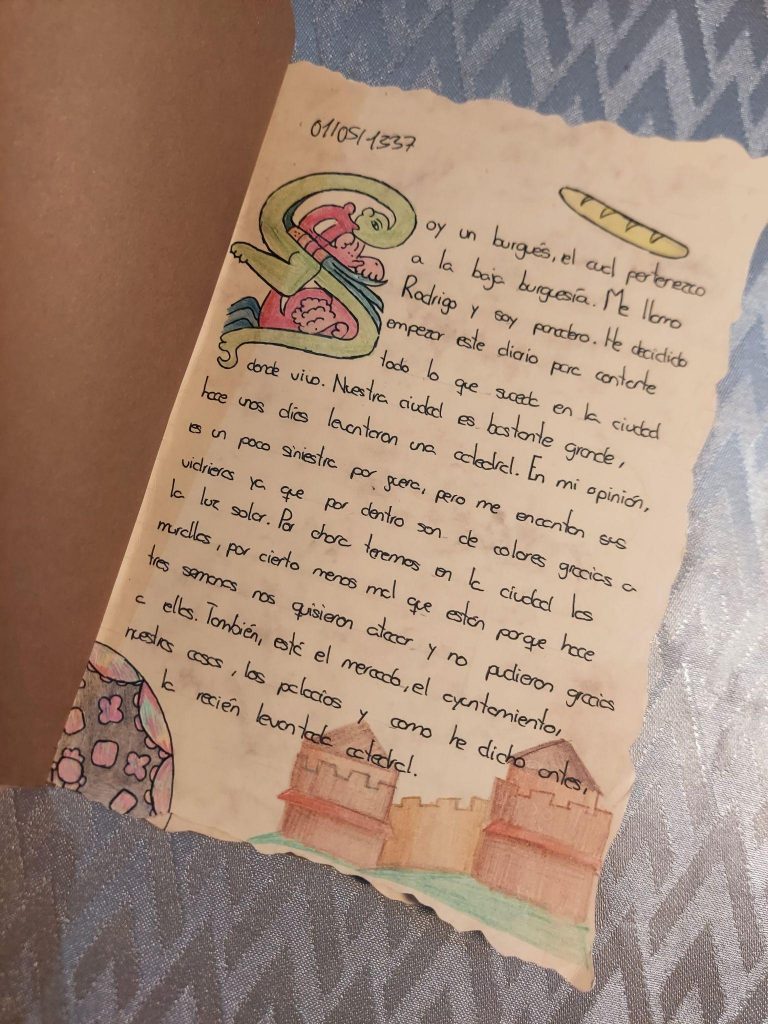 01/05/1337
Soy un burgués, el cual pertenezco
a la baja burguesía. Me llamo
Rodrigo y soy panadero. He decidido
empezar este diario para contarte
todo lo que sucede en la ciudad
donde vivo. Nuestra ciudad es bastante grande,
hace unos días levantaron una catedral. En mi opinión,
es un poco siniestra por fuera, pero me encantan sus
vidrieras ya que por dentro son de colores gracias a
la luz solar. Por ahora tenemos en la ciudad las
murallas, por cierto menos mal que están porque hace
tres semanas nos quisieron atacar y no pudieron gracias
a ellas. También, está el mercado, el ayuntamiento,
nuestras casas, los palacios y como he dicho antes,
la recién levantada catedral.